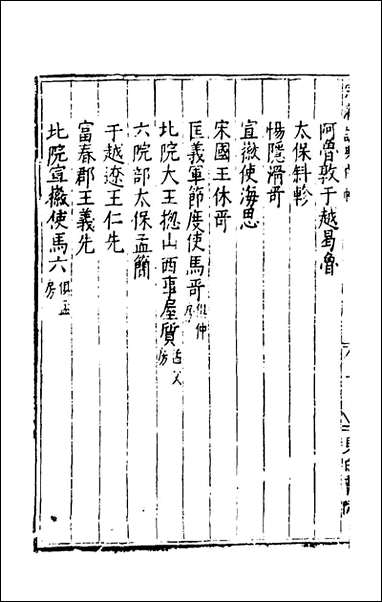 阿魯敦于越曷魯
太保斜軫
惕隱滑哥
宣徽使海思
宋國王休哥
匡義軍節度使馬哥 俱仲房
北院大王摠山西事屋質 占父房
六院部太保孟簡
于越遼王仁先
富春郡王義先
北院宣徽使馬六 俱孟房